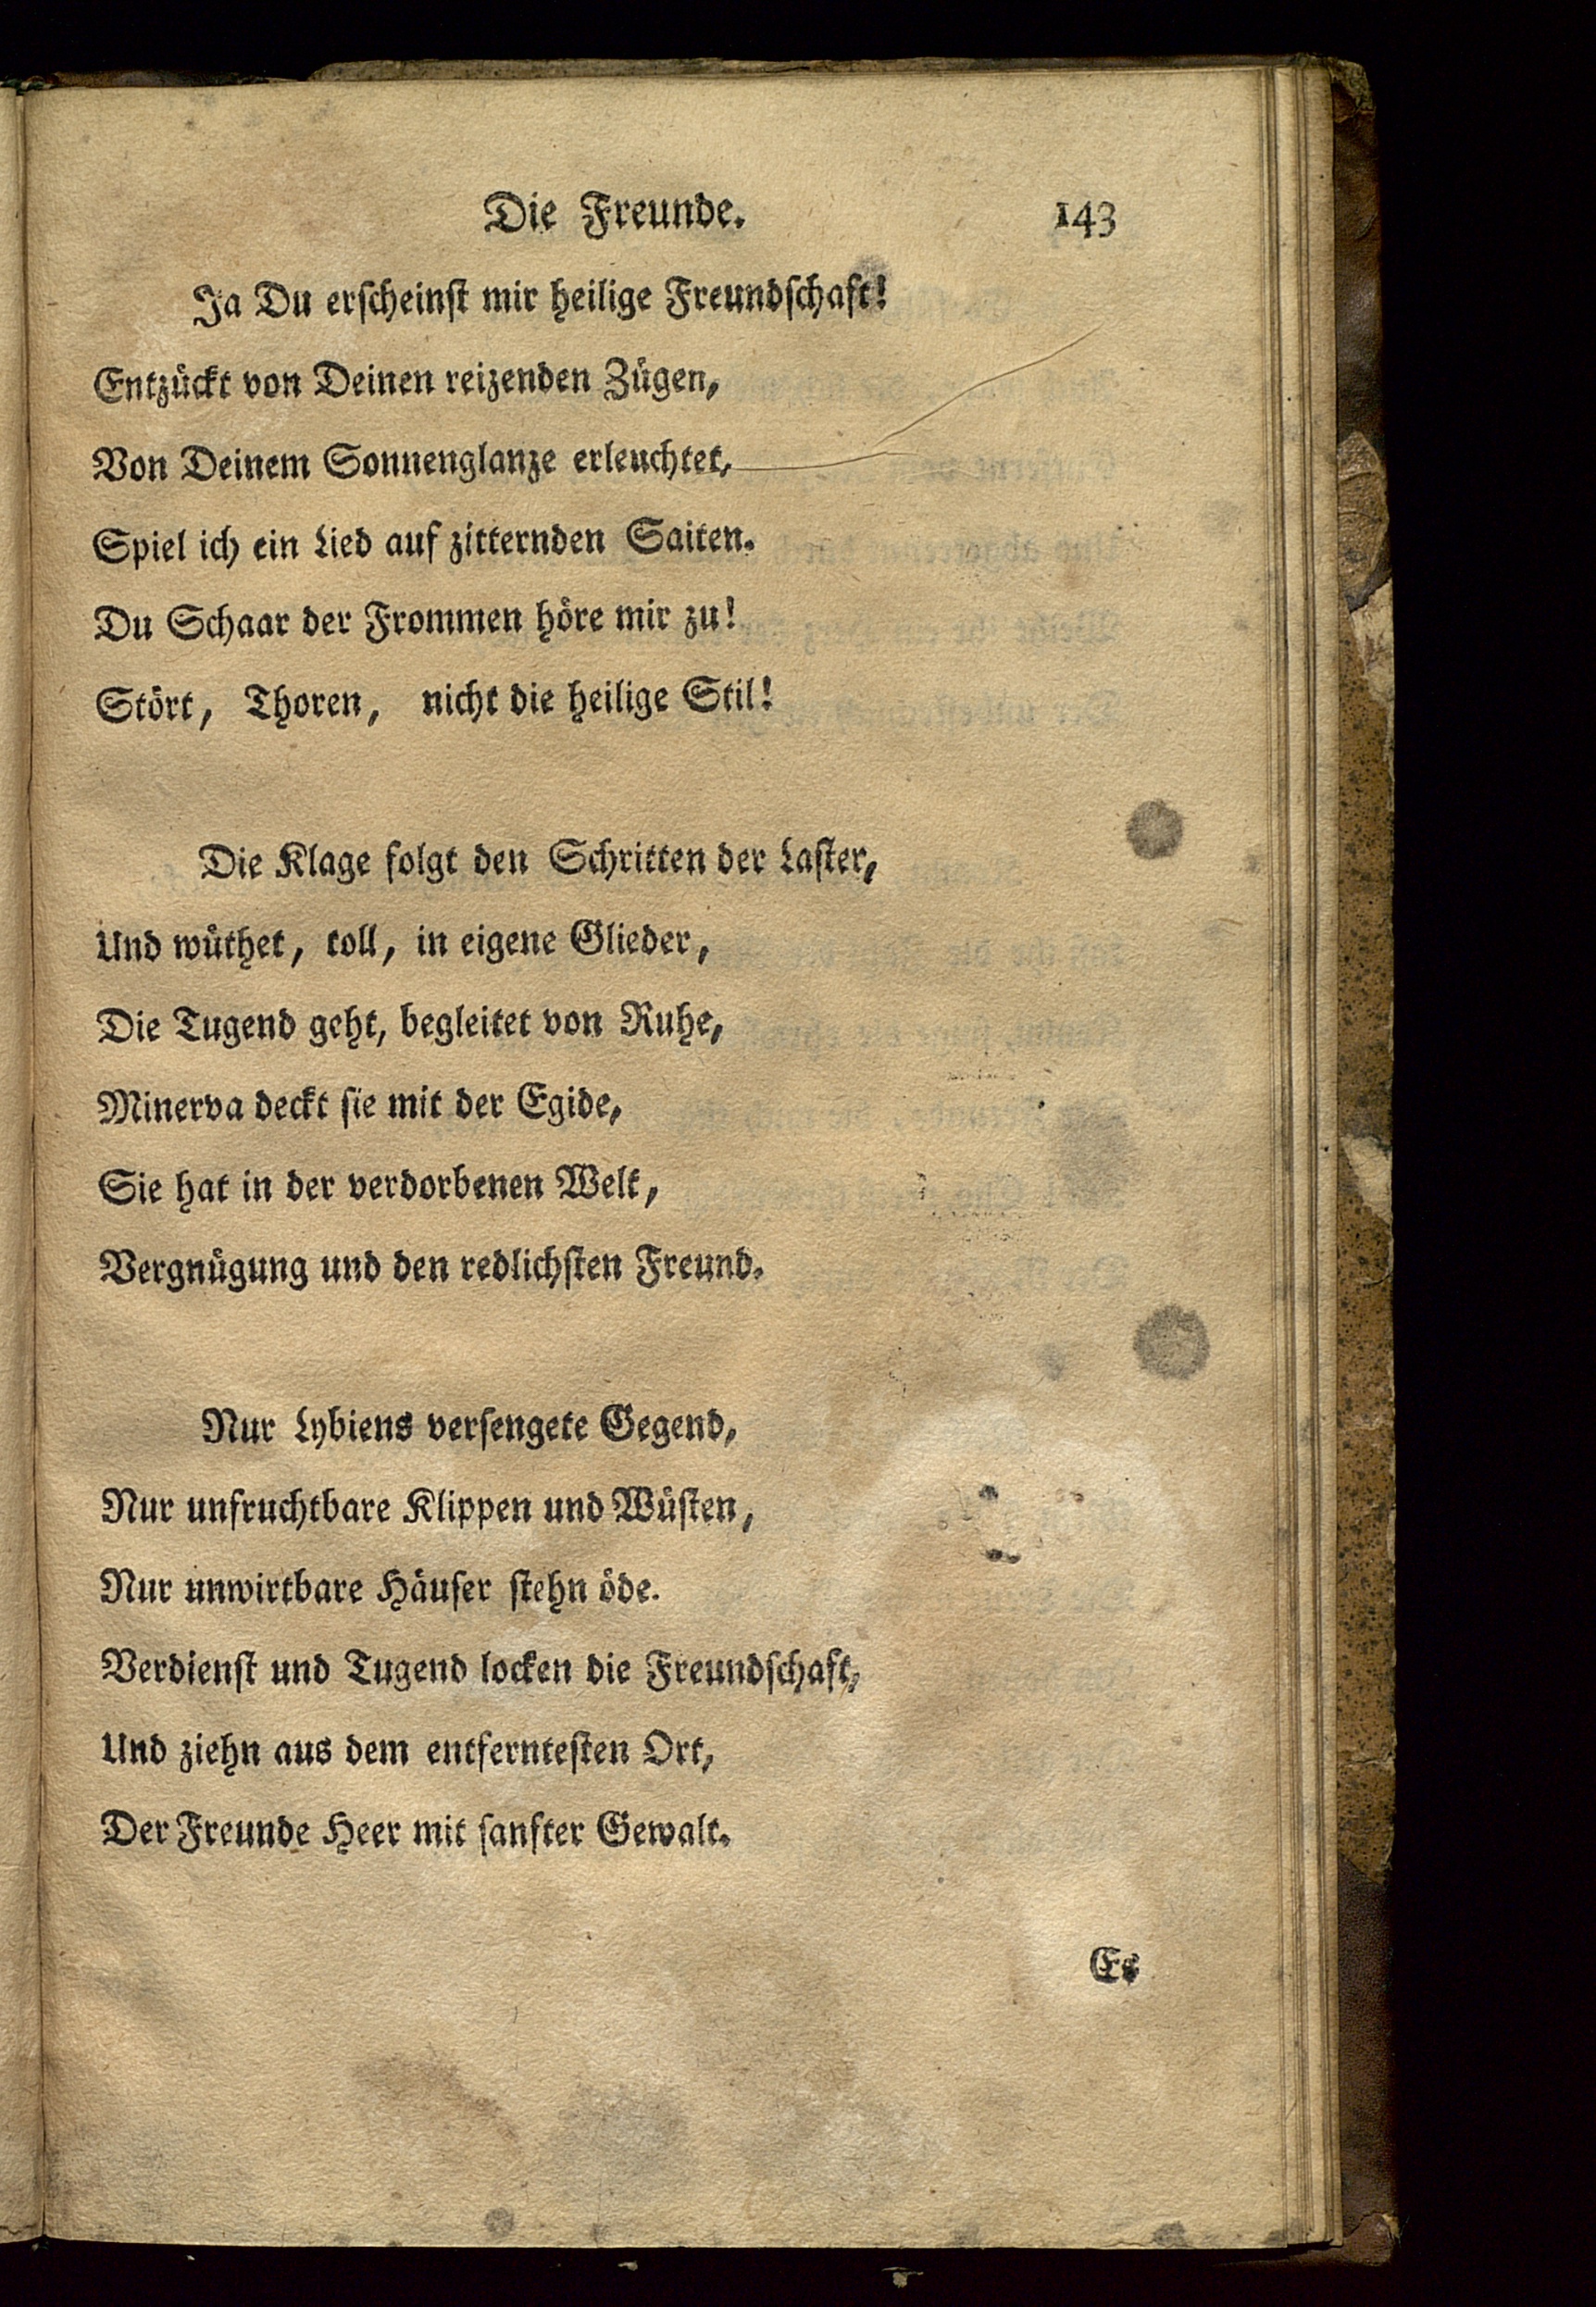 Die Freunde. 143
Ja Du erſcheinſt mir heilige Freundſchaft!
Entzückt von Deinen reizenden Zügen,
Von Deinem Sonnenglanze erleuchtet,
Spiel ich ein Lied auf zitternden Saiten.
Du Schaar der Frommen höre mir zu!
Stört, Thoren, nicht die heilige Stil!
Die Klage folgt den Schritten der Laſter,
Und wüthet, toll, in eigene Glieder,
Die Tugend geht, begleitet von Ruhe,
Minerva deckt ſie mit der Egide,
Sie hat in der verdorbenen Welt,
Vergnügung und den redlichſten Freund.
Nur Lybiens verſengete Gegend,
Nur unfruchtbare Klippen und Wüſten,
Nur unwirtbare Häuſer ſtehn öde.
Verdienſt und Tugend locken die Freundſchaft,
Und ziehn aus dem entfernteſten Ort,
Der Freunde Heer mit ſanfter Gewalt.
Es